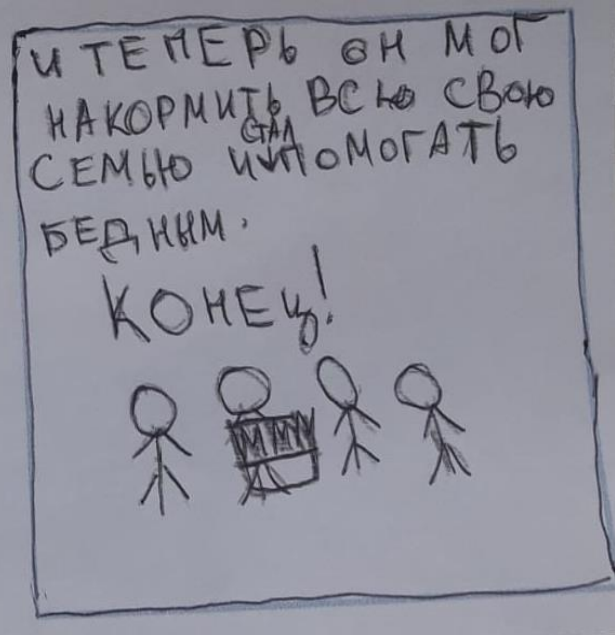 И ТЕПЕРЬ ОН МОГ
НАКОРМИТЬ ВСЮ СВОЮ
СЕМЬЮ И СТАЛ ПОМОГАТЬ
БЕДНЫМ.
КОНЕЦ!